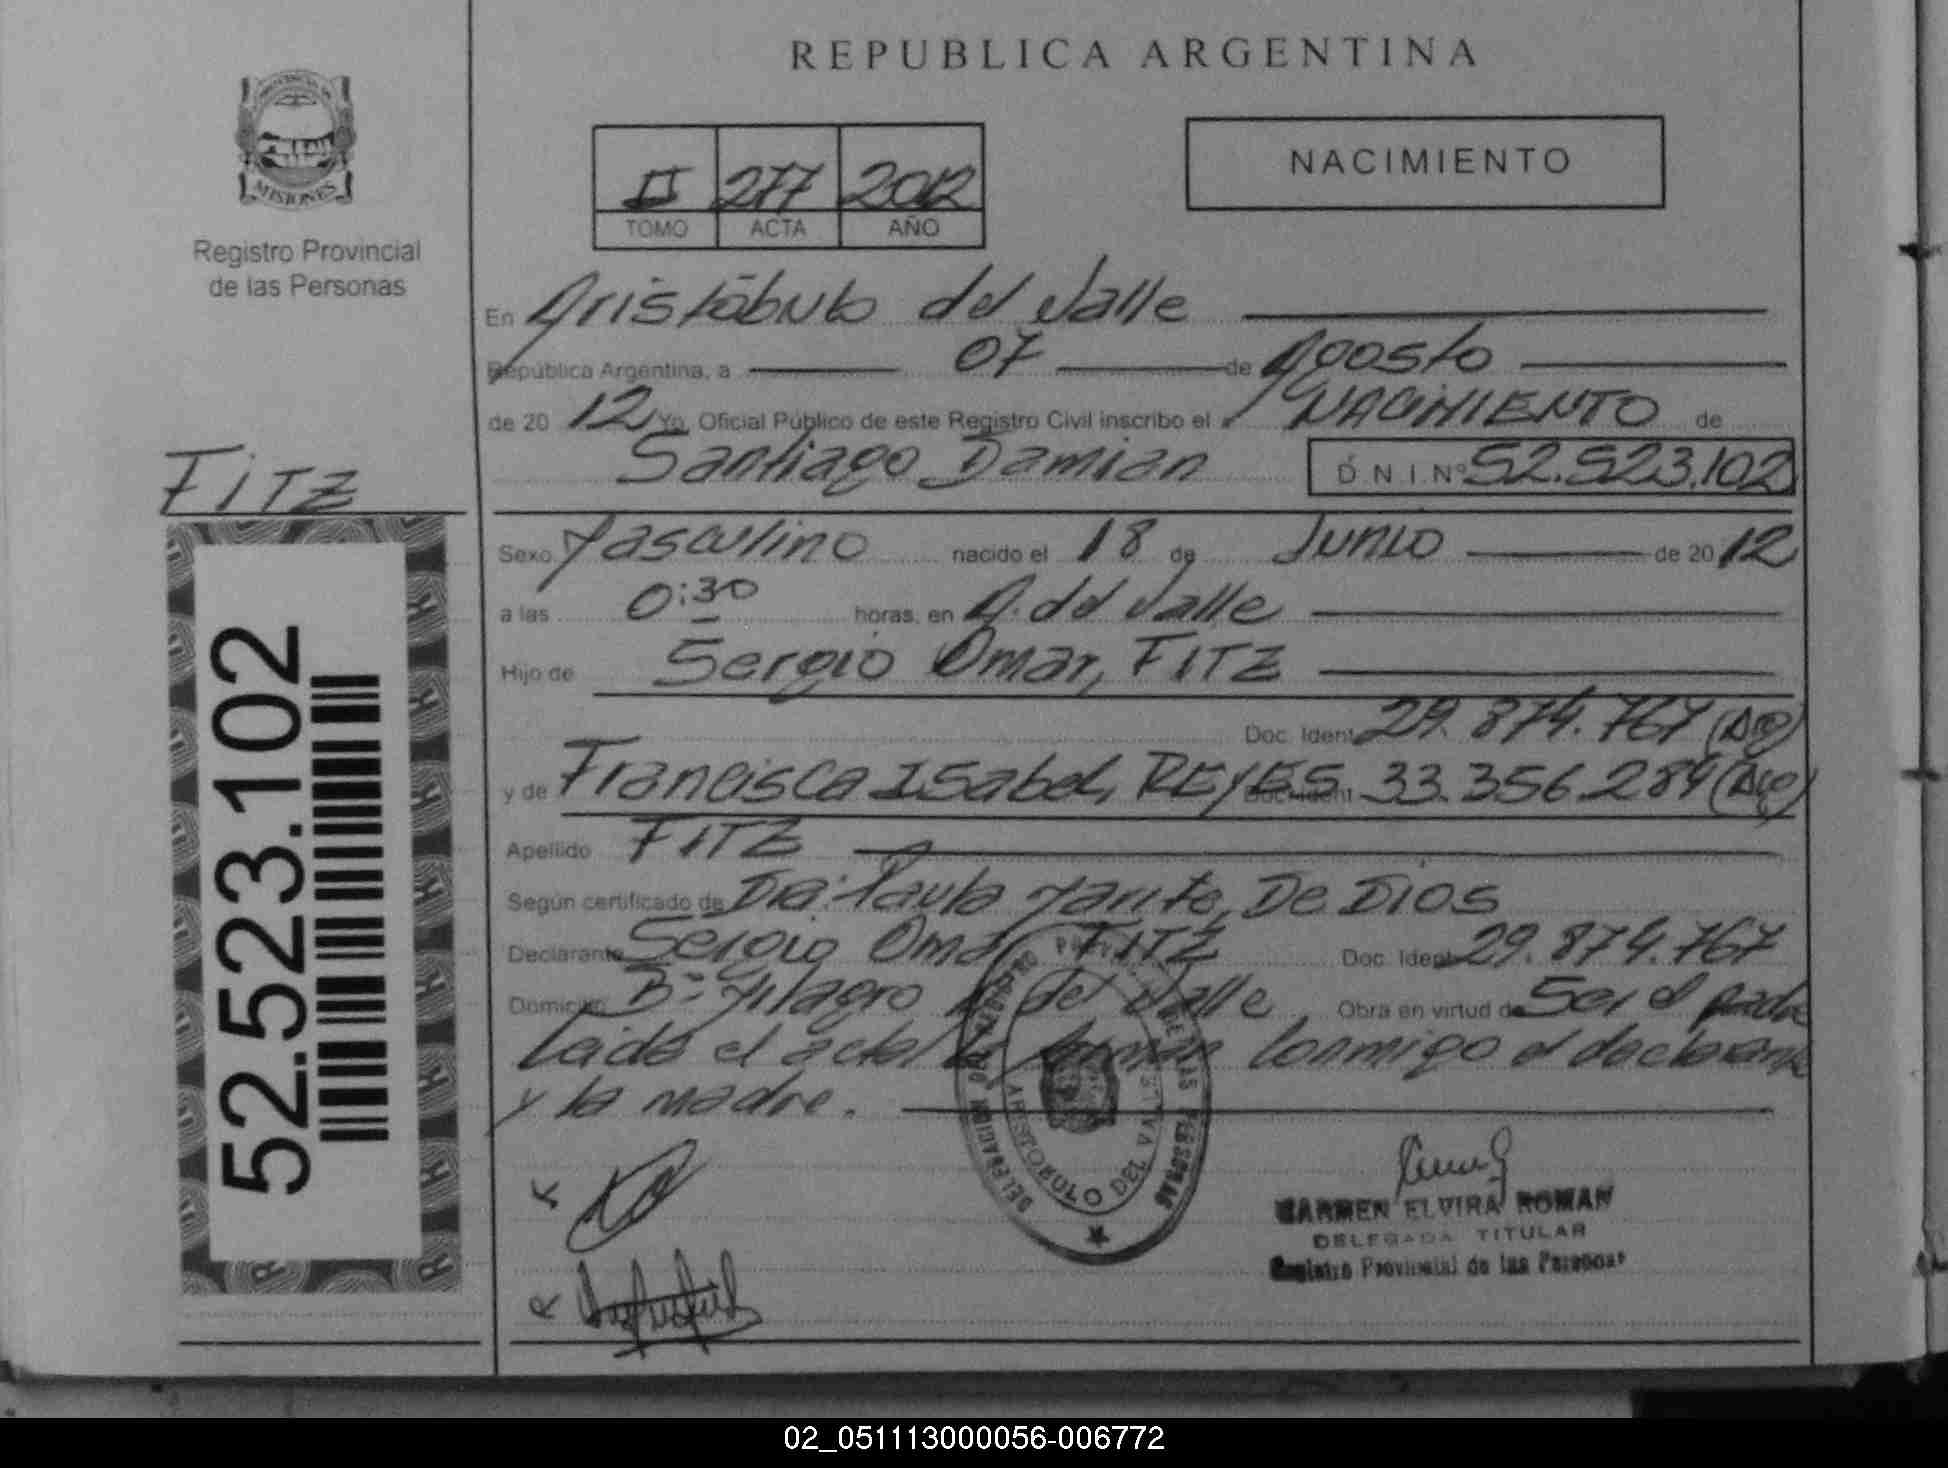 REPUBLICA ARGENTINA
MISIONES
Registro Provincial
de las Personas
II 277 2012
TOMO ACTA AÑO
NACIMIENTO
En Aristóbulo del Valle
República Argentina, a 07 de Agosto
de 20 12 Yo, Oficial Público de este Registro Civil inscribo el NACIMIENTO de
Santiago Damian D.N.I.Nº 52.523.102
FITZ
52.523.102
Sexo Masculino nacido el 18 de Junio de 20 12
a las 0:30 horas, en A. del Valle
Hijo de Sergio Omar, FITZ
Doc. Ident. 29.874.767 (Arg)
y de Francisca Isabel, REYES Doc. Ident. 33.356.284 (Arg)
Apellido FITZ
Según certificado de Dra: Paula Marite, De Dios
Declarante Sergio Omar FITZ Doc. Ident. 29.874.767
Domicilio Bº Milagro A. del Valle Obra en virtud de Ser el padre
Leida el acta la firman Conmigo el declarante
y la madre.
DELEGACION DEL REGISTRO PROVINCIAL DE LAS PERSONAS
ARISTOBULO DEL VALLE
CARMEN ELVIRA ROMAN
DELEGADA TITULAR
Registro Provincial de las Personas
02_051113000056-006772